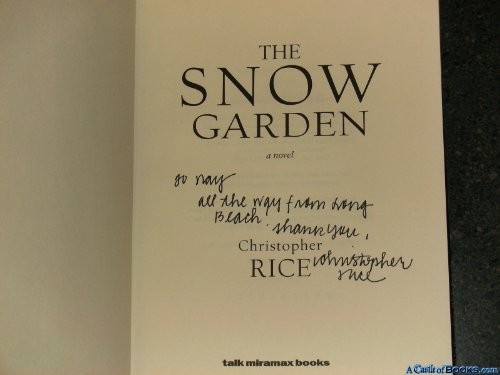 THE
SNOW
GARDEN
a novel
To Ray
all the way from Long
Beach. Thank you,
Christopher
RICE
Christopher
Rice
talk miramax books
A Castle of BOOKS.com